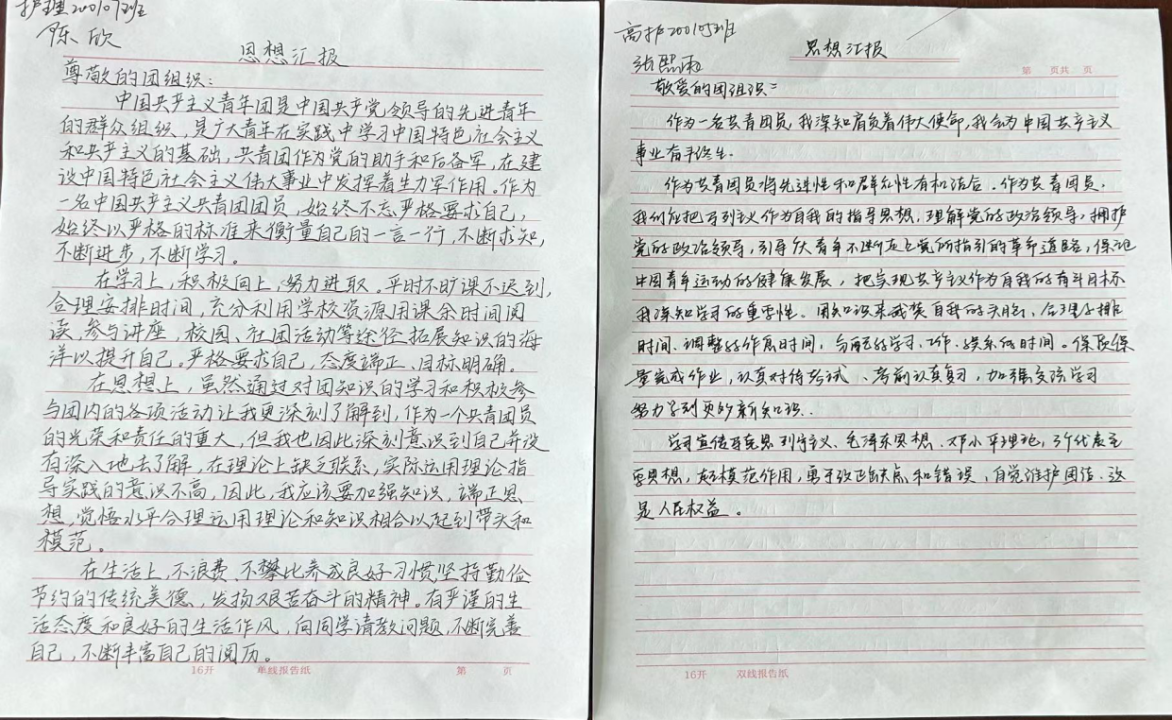 护理200107班
陈欣
思想汇报
尊敬的团组织：
中国共产主义青年团是中国共产党领导的先进青年
的群众组织，是广大青年在实践中学习中国特色社会主义
和共产主义的基础，共青团作为党的助手和后备军，在建
设中国特色社会主义伟大事业中发挥着生力军作用。作为
一名中国共产主义共青团团员，始终不忘严格要求自己，
始终以严格的标准来衡量自己的一言一行，不断求知，
不断进步，不断学习。
在学习上，积极向上，努力进取，平时不旷课不迟到，
合理安排时间，充分利用学校资源用课余时间阅
读，参与讲座，校园、社团活动等途径拓展知识的海
洋以提升自己。严格要求自己，态度端正、目标明确。
在思想上，虽然通过对团知识的学习和积极参
与团内的各项活动让我更深刻了解到，作为一个共青团员
的光荣和责任的重大，但我也因此深刻意识到自己并没
有深入地去了解，在理论上缺乏联系，实际运用理论指
导实践的意识不高，因此，我应该要加强知识，端正思
想，觉悟水平合理运用理论和知识相合以起到带头和
模范。
在生活上，不浪费、不攀比养成良好习惯坚持勤俭
节约的传统美德，发扬艰苦奋斗的精神。有严谨的生
活态度和良好的生活作风，向同学请教问题，不断完善
自己，不断丰富自己的阅历。
16开 单线报告纸 第 页
高护200105班
张熙雨
思想汇报
第 页共 页
敬爱的团组织：
作为一名共青团员，我深知肩负着伟大使命，我会为中国共产主义
事业奋斗终生.
作为共青团员将先进性和群众性有机结合。作为共青团员，
我们应把马列主义作为自我的指导思想，理解党的政治领导，拥护
党的政治领导，引导广大青年不断走上党所指引的革命道路，保证
中国青年运动的健康发展，把实现共产主义作为自我的奋斗目标
我深知学习的重要性。用知识来武装自我的头脑，合理安排
时间、调整好作息时间，分配好学习、工作、娱乐的时间。保质保
量完成作业，认真对待考试、考前认真复习，加强交流学习
努力学到更的新知识.
学习宣传马克思列宁主义、毛泽东思想、邓小平理论，3个代表主
要思想，起模范作用，勇于改正缺点和错误，自觉维护团结、
是人民权益。
16开 双线报告纸